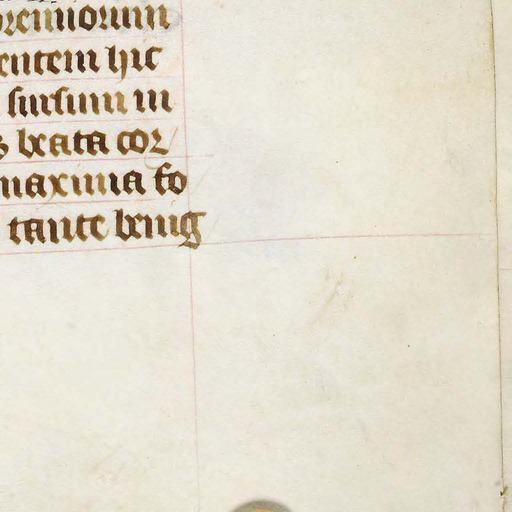 premiorum
entem hic
sursum in
s beata cor
maxima fo
tante benig